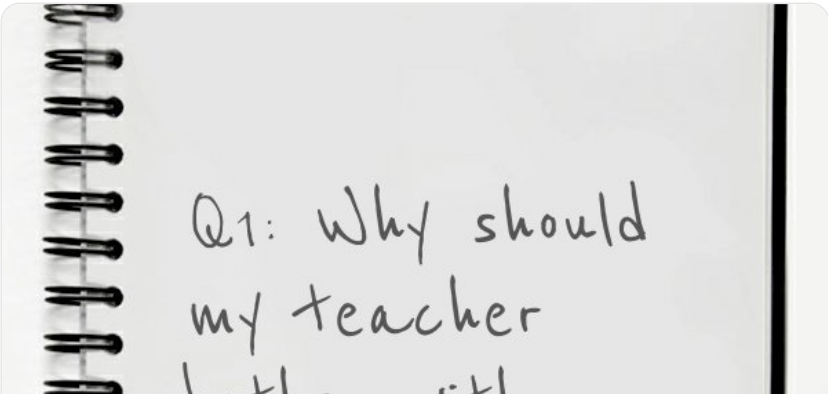 Q1: Why should
my teacher